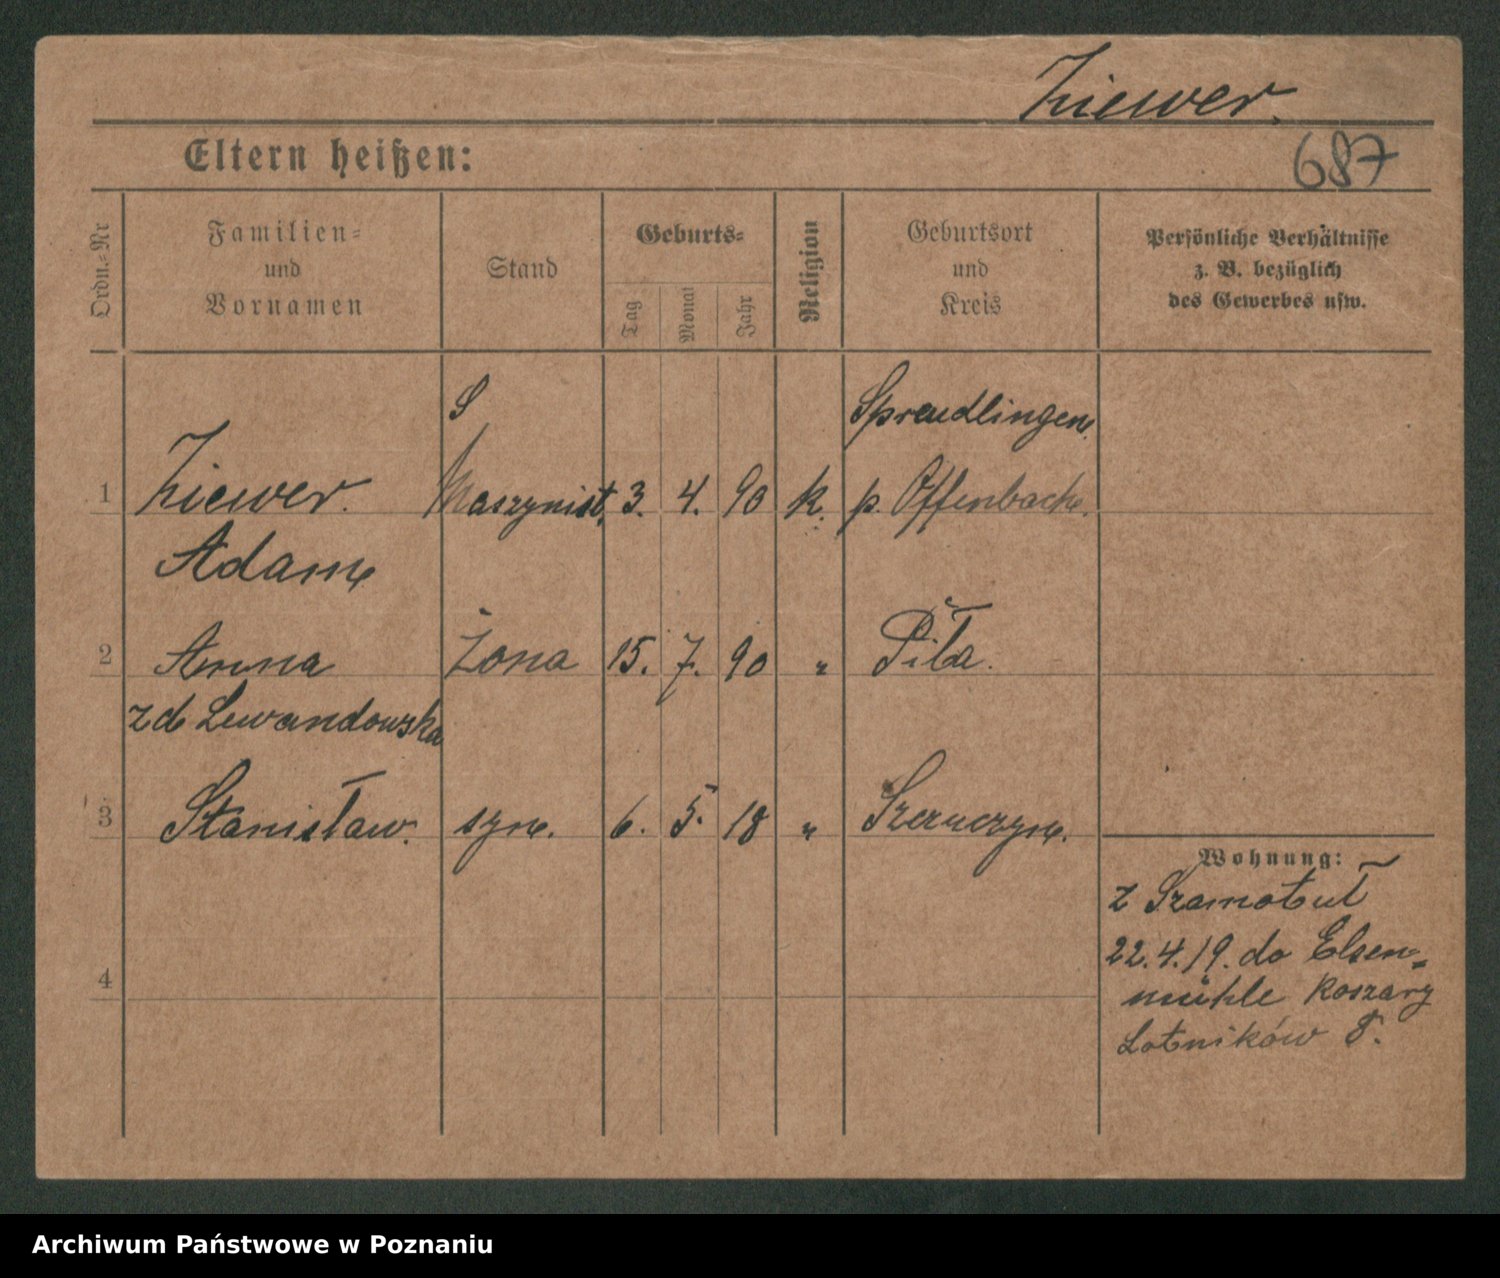 Ziewer.
687
Eltern heißen:
Ordn.-Nr
Familien-
und
Vornamen
Stand
Geburts-
Tag
Monat
Jahr
Religion
Geburtsort
und
Kreis
Persönliche Verhältnisse
z. B. bezüglich
des Gewerbes usw.
S
Sprendlingen.
1 Ziewer. Maszynist. 3. 4. 90 k. p. Offenbach.
Adam
2 Anna Żona 15. 7. 90 " Piła.
zd Lewandowska
3 Stanisław. syn. 6. 5. 18 "
Wohnung:
z Szamotuł
22.4.19. do Elsen-
mühle Koszary
Lotników 8.
4
Archiwum Państwowe w Poznaniu